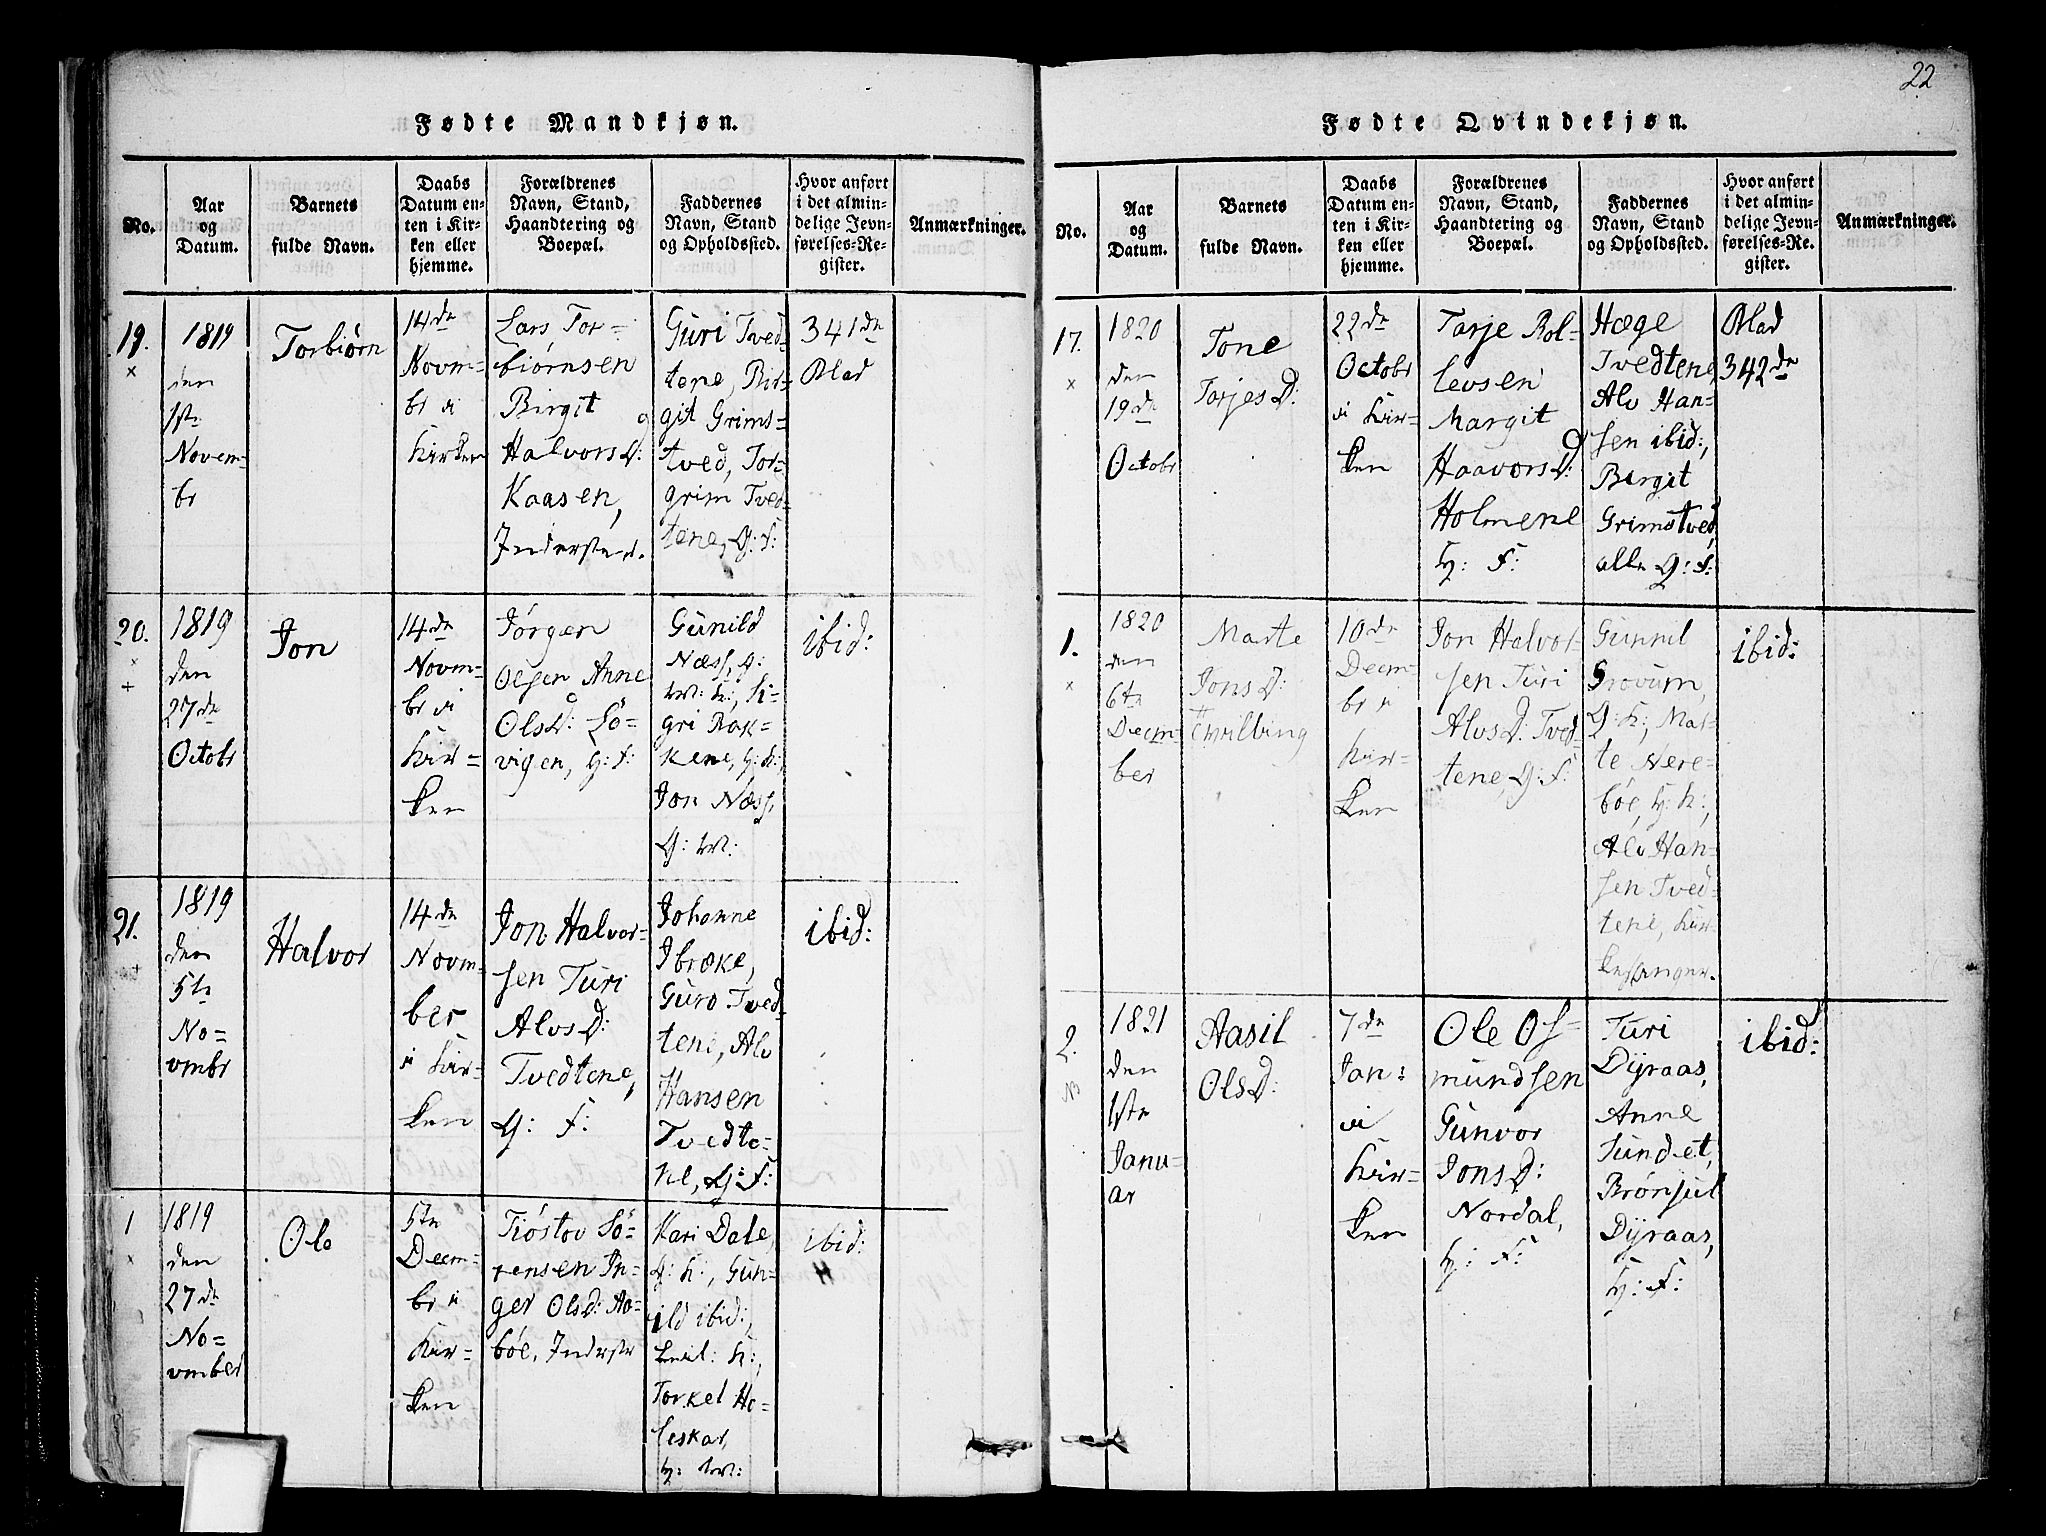 22
Fødte Mandkjøn.
No.
Aar
og
Datum.
Barnets
fulde Navn.
Daabs
Datum en-
ten i Kir-
ken eller
hjemme.
Forældrenes
Navn, Stand,
Haandtering og
Boepæl.
Faddernes
Navn, Stand
og Opholdssted.
Hvor anført
i det almin-
delige Jevn-
førelses-Re-
gister.
Anmærkninger.
19.
1819
den
1ste
Novem-
br
Torbiørn
14de
Novm-
br i
Kirken
Lars Tor-
biørnsen
Birgit
HalvorsD:
Kaasen,
Inderste.
Guri Tved-
tene, Bir-
git Grims-
tved, Tor-
grim Tved-
tene, G: F:
341de
Blad
20.
1819
den
27de
Octobr
Jon
14de
Novm-
br i
Kir-
ken
Jörgen
Olsen Anne
OlsD: Lö-
vigen, H: F:
Gunild
Næss, G:
K:, 
gri Bak-
kene, H: K:,
Jon Næss,
G:
ibid:
21.
1819
den
5te
No-
vmbr
Halvor
14de
Novm-
ber
i Kir-
ken
Jon Halvor-
sen Turi
AlvsD:
Tvedtene,
G: F:
Johanne
Ibroke,
Guro Tved-
tene, Alv
Hansen
Tvedte-
ne, G: F:
ibid:
1
1819
den
27de
No-
vmber
Ole
5te
Decm-
br i
Kir-
ken
Tiöstov Sö-
rensen In-
ger OlsD: Aa-
böe, Inderste
Kari Dale,
G: K:, Gun-
ild ibid:,
K:,
Torkel Ho-
leskar,
H:
ibid:
Fødte Qvindekjøn.
No.
Aar
og
Datum.
Barnets
fulde Navn.
Daabs
Datum en-
ten i Kir-
ken eller
hjemme.
Forældrenes
Navn, Stand,
Haandtering og
Boepæl.
Faddernes
Navn, Stand
og Opholdssted.
Hvor anført
i det almin-
delige Jevn-
førelses-Re-
gister.
Anmærkninger.
17.
1820
den
19de
Octobr
Tone
TarjesD:
22de
Octobr
i Kir-
ken
Tarje Rol-
levsen
Margit
HaavorsD:
Holmene
H: F:
Hæge
Tvedtene,
Alv Han-
sen ibid:,
Birgit
Grimstved,
alle G: F:
Blad
342de
1.
1820
den
6te
Decm-
ber
Marte
JonsD:
Tvilling
10de
Decm-
br i
Kir-
ken
Jon Halvor-
sen Turi
AlvsD: Tved-
tene, G: F:
Gunnil
Grovum,
G: K:, Mar-
te Nere-
böe, H: K:,
Alv Han-
sen Tved-
tene, Kir-
kesanger.
ibid:
2.
1821
den
1ste
Janu-
ar
Aasil
OlsD:
7de
Jan:
i
Kir-
ken
Ole Os-
mundsen
Gunvor
JonsD:
Nordal,
H: F:
Turi
Dyraas,
Anne
Sundet,
Brönjul
Dyraas,
H: F:
ibid: